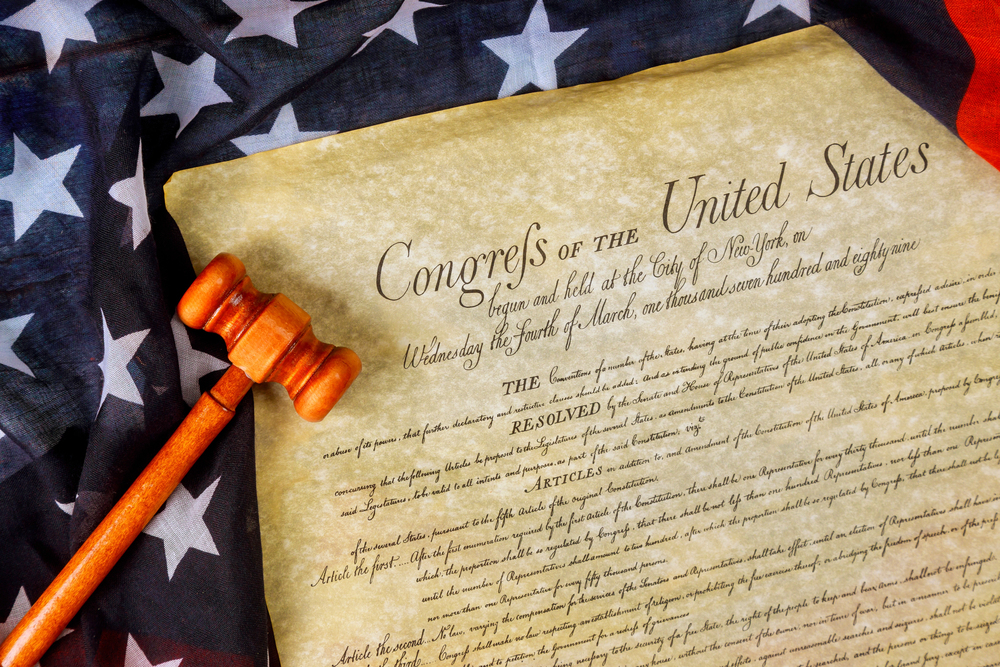 Congreſs OF THE United States
begun and held at the City of New-York, on
Wednesday the fourth of March, one thousand seven hundred and eighty nine
THE Conventions of a number of the States, having at the time of their adopting the Constitution, expressed a desire in order
or abuse of its powers, that further declaratory and restrictive clauses should be added: And as extending the ground of public confidence in the Government, will best ensure the
RESOLVED by the Senate and House of Representatives of the United States of America in Congreſs aſsembled,
concurring that the following Articles be proposed to the Legislatures of the several States, as amendments to the Constitution of the United States, all, or any of which Articles, when
said Legislatures, to be valid to all intents and purposes, as part of the said Constitution; vizt.
ARTICLES in addition to, and Amendment of the Constitution of the United States of America, proposed by Congreſs
of the several States, pursuant to the fifth Article of the original Constitution.
Article the first.... After the first enumeration required by the first Article of the Constitution, there shall be one Representative for every thirty thousand, until the number shall
which, the proportion shall be so regulated by Congreſs, that there shall be not leſs than one hundred Representatives, nor leſs than one Representative
until the number of Representatives shall amount to two hundred, after which the proportion shall be so regulated by Congreſs, that there shall not be
nor more than one Representative for every fifty thousand persons.
Article the second... No law, varying the compensation for the services of the Senators and Representatives, shall take effect, until an election of Representatives shall have
Congreſs shall make no law respecting an establishment of religion, or prohibiting the free exercise thereof; or abridging the freedom of speech, or of the
and to petition the Government for a redreſs of grievances
being neceſsary to the security of a free State, the right of the people to keep and bear arms, shall not be infringed.
house, without the consent of the owner, nor in time of war, but in a manner to be
effects, against unreasonable searches and seizures, shall not be